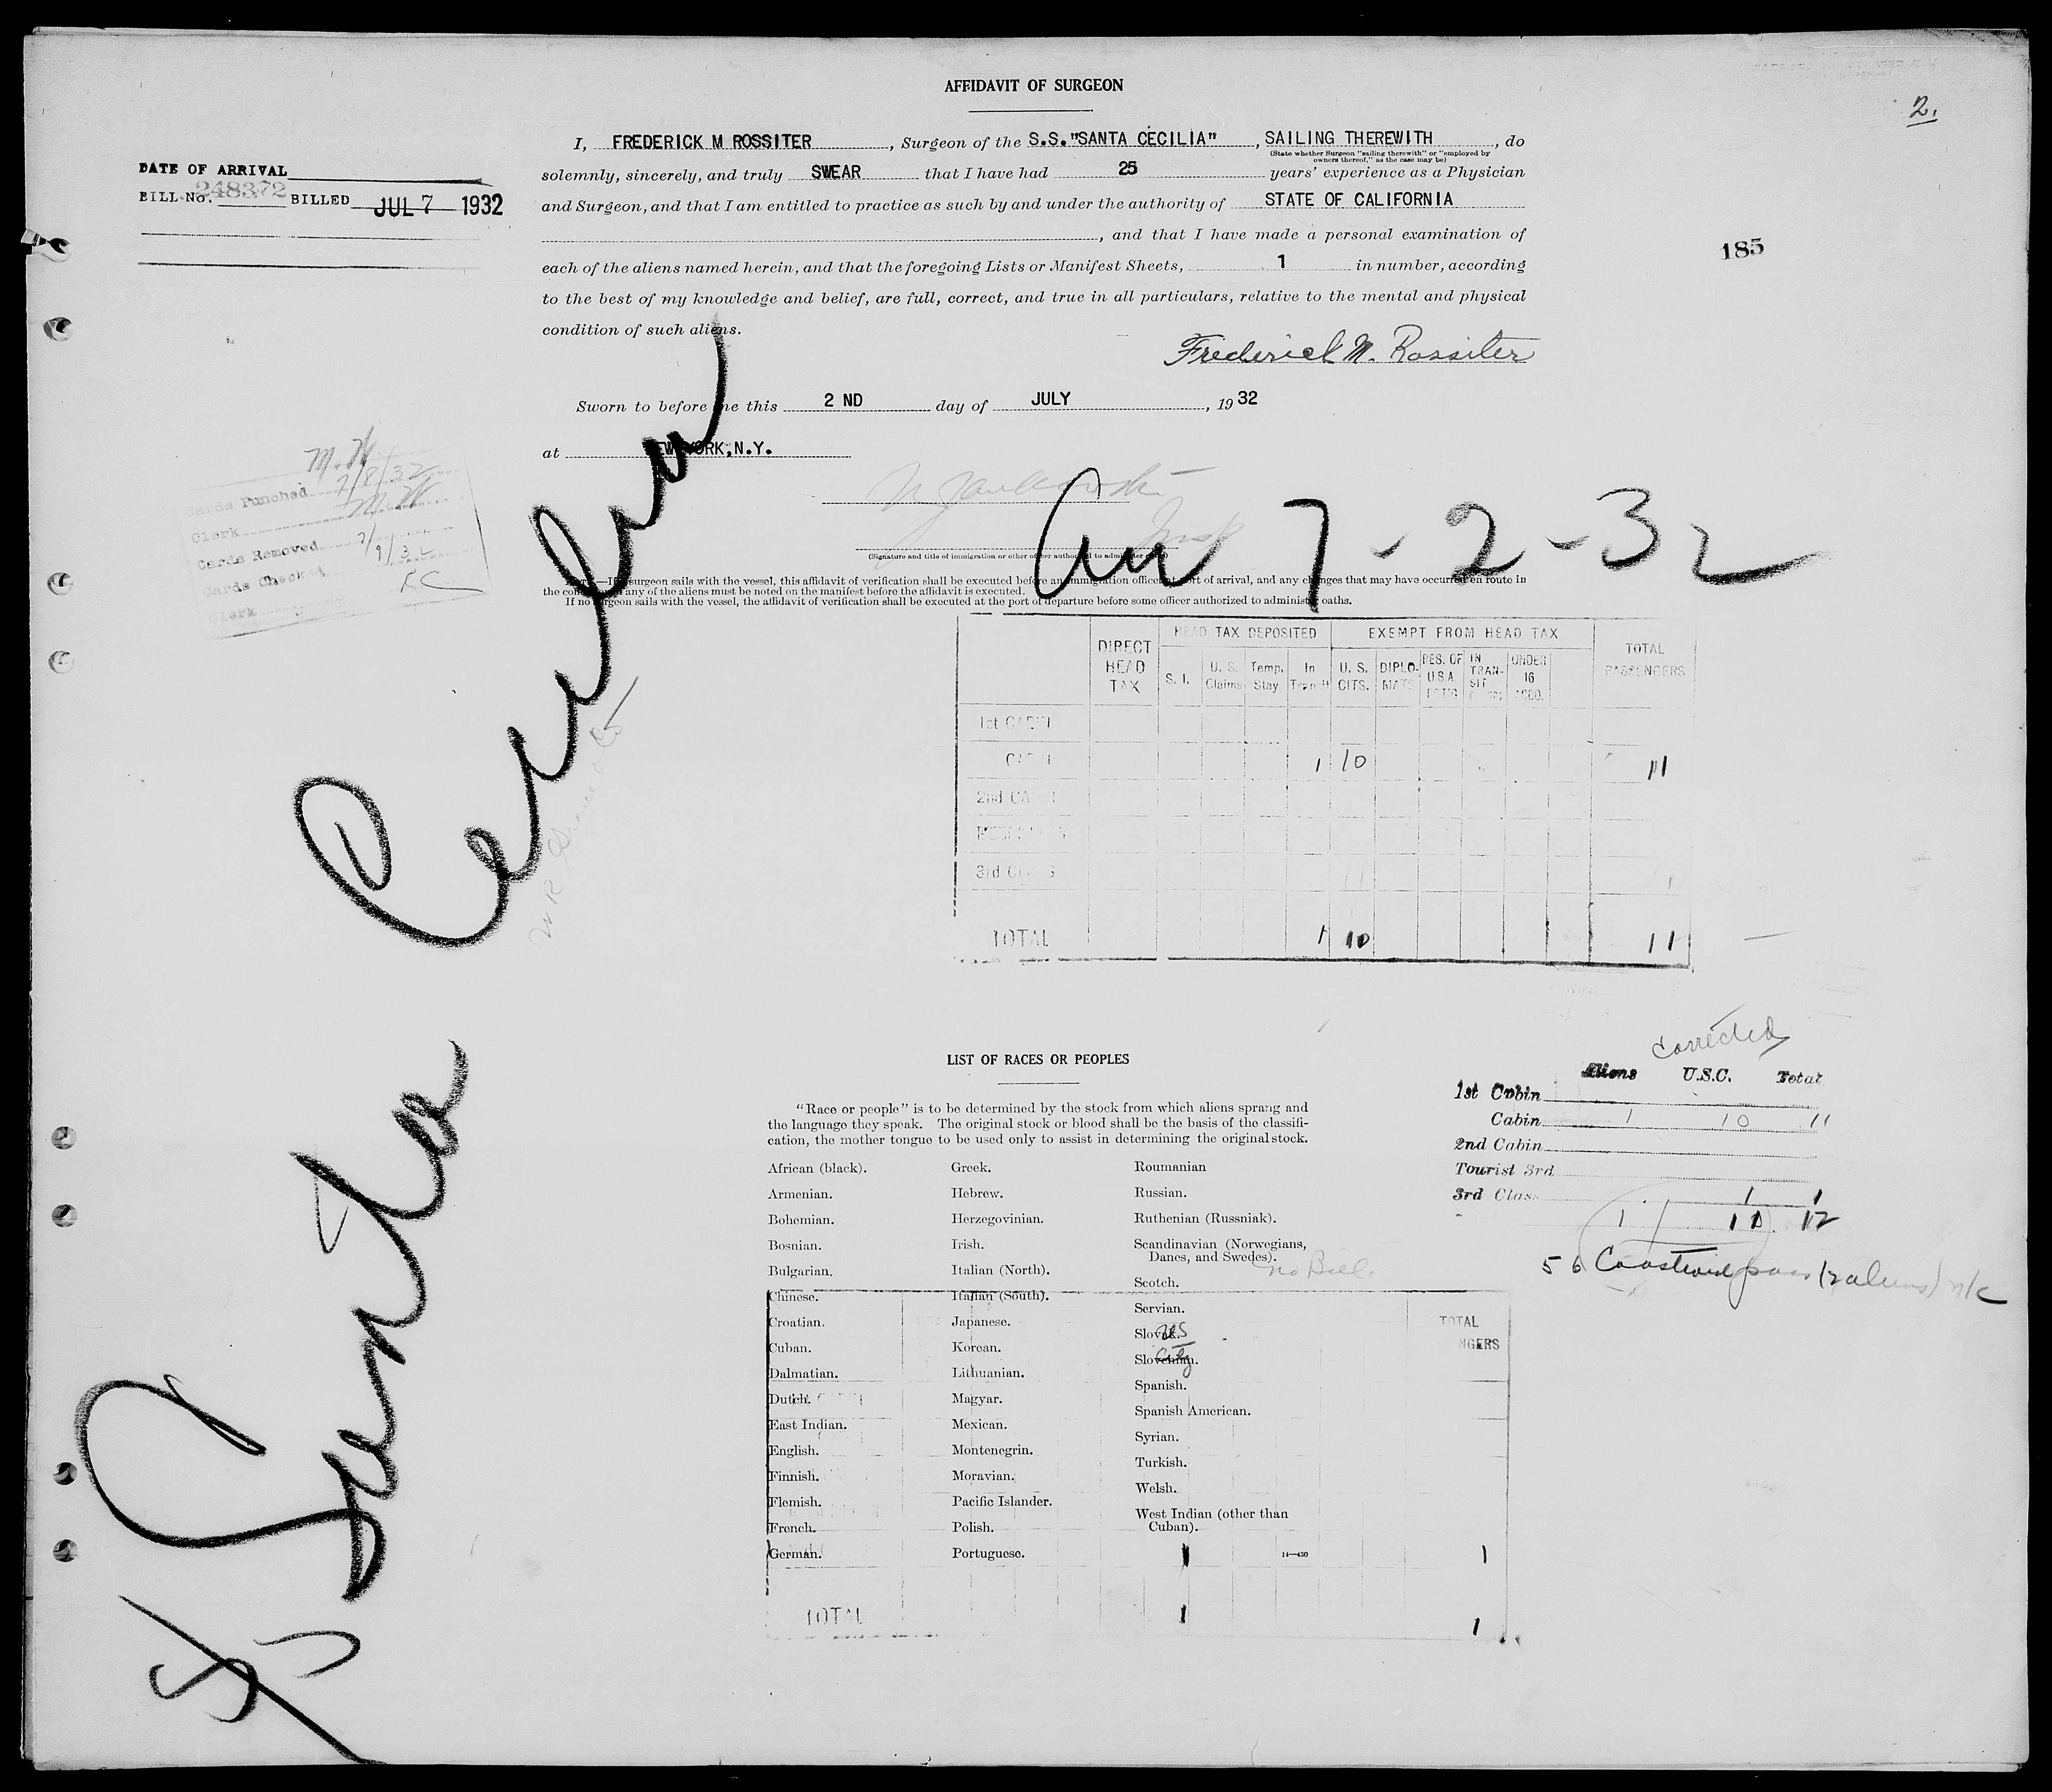 AFFIDAVIT OF SURGEON
2.
I, FREDERICK M ROSSITER, Surgeon of the S.S."SANTA CECILIA", SAILING THEREWITH, do
(State whether Surgeon "sailing therewith" or "employed by
owners thereof," as the case may be)
solemnly, sincerely, and truly SWEAR that I have had 25 years' experience as a Physician
and Surgeon, and that I am entitled to practice as such by and under the authority of STATE OF CALIFORNIA
, and that I have made a personal examination of
each of the aliens named herein, and that the foregoing Lists or Manifest Sheets, 1 in number, according
to the best of my knowledge and belief, are full, correct, and true in all particulars, relative to the mental and physical
condition of such aliens.
Frederick M. Rossiter
DATE OF ARRIVAL
BILL No. 248372 BILLED JUL 7 1932
185
Sworn to before me this 2 ND day of JULY, 1932
at NEW YORK, N.Y.
M.W
Cards Punched 7/8/32
Clerk M.W
Cards Removed 7/9/32
Cards Checked
Clerk RC
Arr 7-2-32
(Signature and title of immigration or other officer authorized to administer oaths)
NOTE.—If surgeon sails with the vessel, this affidavit of verification shall be executed before an immigration officer at port of arrival, and any changes that may have occurred en route in
the condition of any of the aliens must be noted on the manifest before the affidavit is executed.
If no surgeon sails with the vessel, the affidavit of verification shall be executed at the port of departure before some officer authorized to administer oaths.
SS Santa Cecilia
DIRECT HEAD TAX
HEAD TAX DEPOSITED
EXEMPT FROM HEAD TAX
TOTAL PASSENGERS
S. I. U. S. Claims Temp. Stay In Transit U. S. CITS. DIPLOMATS RES. OF U.S.A. IN TRANSIT UNDER 16
1st CABIN
CABIN 1 10 11
2nd CABIN
3rd CLASS
TOTAL 1 10 11
LIST OF RACES OR PEOPLES
"Race or people" is to be determined by the stock from which aliens sprang and
the language they speak. The original stock or blood shall be the basis of the classifi-
cation, the mother tongue to be used only to assist in determining the original stock.
African (black).
Armenian.
Bohemian.
Bosnian.
Bulgarian.
Chinese.
Croatian.
Cuban.
Dalmatian.
Dutch.
East Indian.
English.
Finnish.
Flemish.
French.
German.
Greek.
Hebrew.
Herzegovinian.
Irish.
Italian (North).
Italian (South).
Japanese.
Korean.
Lithuanian.
Magyar.
Mexican.
Montenegrin.
Moravian.
Pacific Islander.
Polish.
Portuguese.
Roumanian
Russian.
Ruthenian (Russniak).
Scandinavian (Norwegians,
Danes, and Swedes).
Scotch.
Servian.
Slovak.
Slovenian.
Spanish.
Spanish American.
Syrian.
Turkish.
Welsh.
West Indian (other than
Cuban).
14—430
no Bill
US
TOTAL
NGERS
1 1
TOTAL 1 1
Corrected
Aliens U.S.C. Total
1st Cabin
Cabin 1 10 11
2nd Cabin
Tourist 3rd
3rd Class 1 1
1 11 12
56 Coastwise pass (2 aliens) n/c